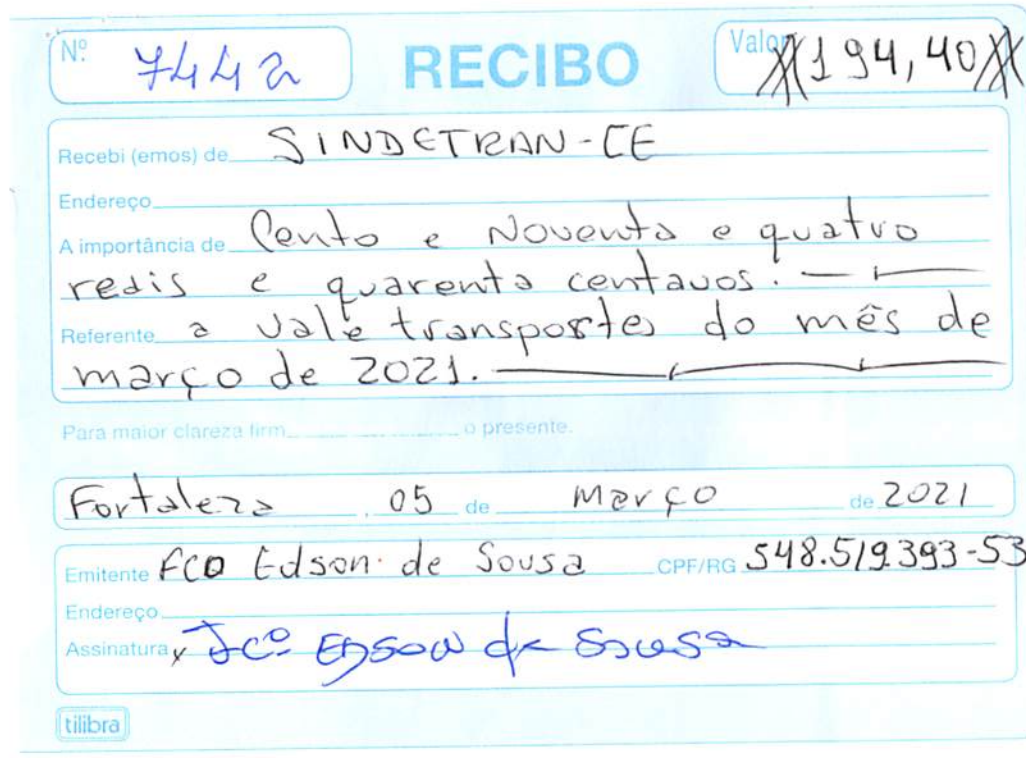 Nº 7442 RECIBO Valor 194,40
Recebi (emos) de SINDETRAN-CE
Endereço
A importância de Cento e Noventa e quatro
reais e quarenta centavos.
Referente a Vale transportes do mês de
março de 2021.
Para maior clareza firm o presente.
Fortaleza, 05 de março de 2021
Emitente FCO Edson de Sousa CPF/RG 548.519.393-53
Endereço
Assinatura x Fcº EDSON de Sousa
tilibra